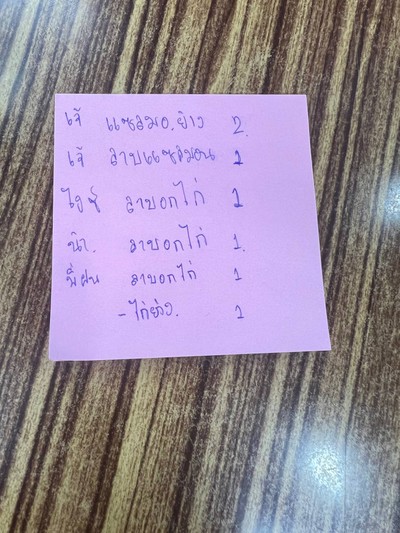 เจ้ แซลมอ.ย่าง 2.
เจ้ ลาบแซลมอน 1
ไอซ์ ลาบอกไก่ 1
นิก. ลาบอกไก่ 1.
พี่ฝน ลาบอกไก่ 1
-ไก่ย่าง. 1